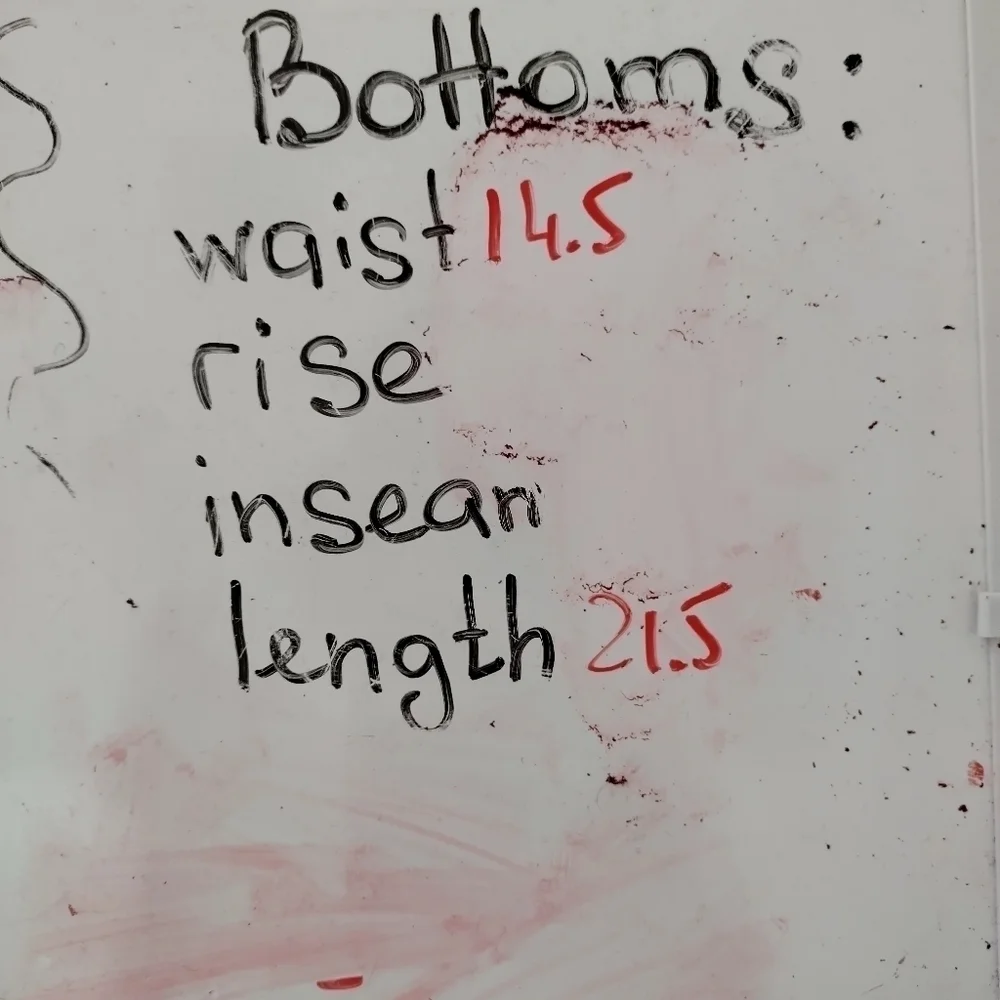 Bottoms:
waist 14.5
rise
inseam
length 21.5